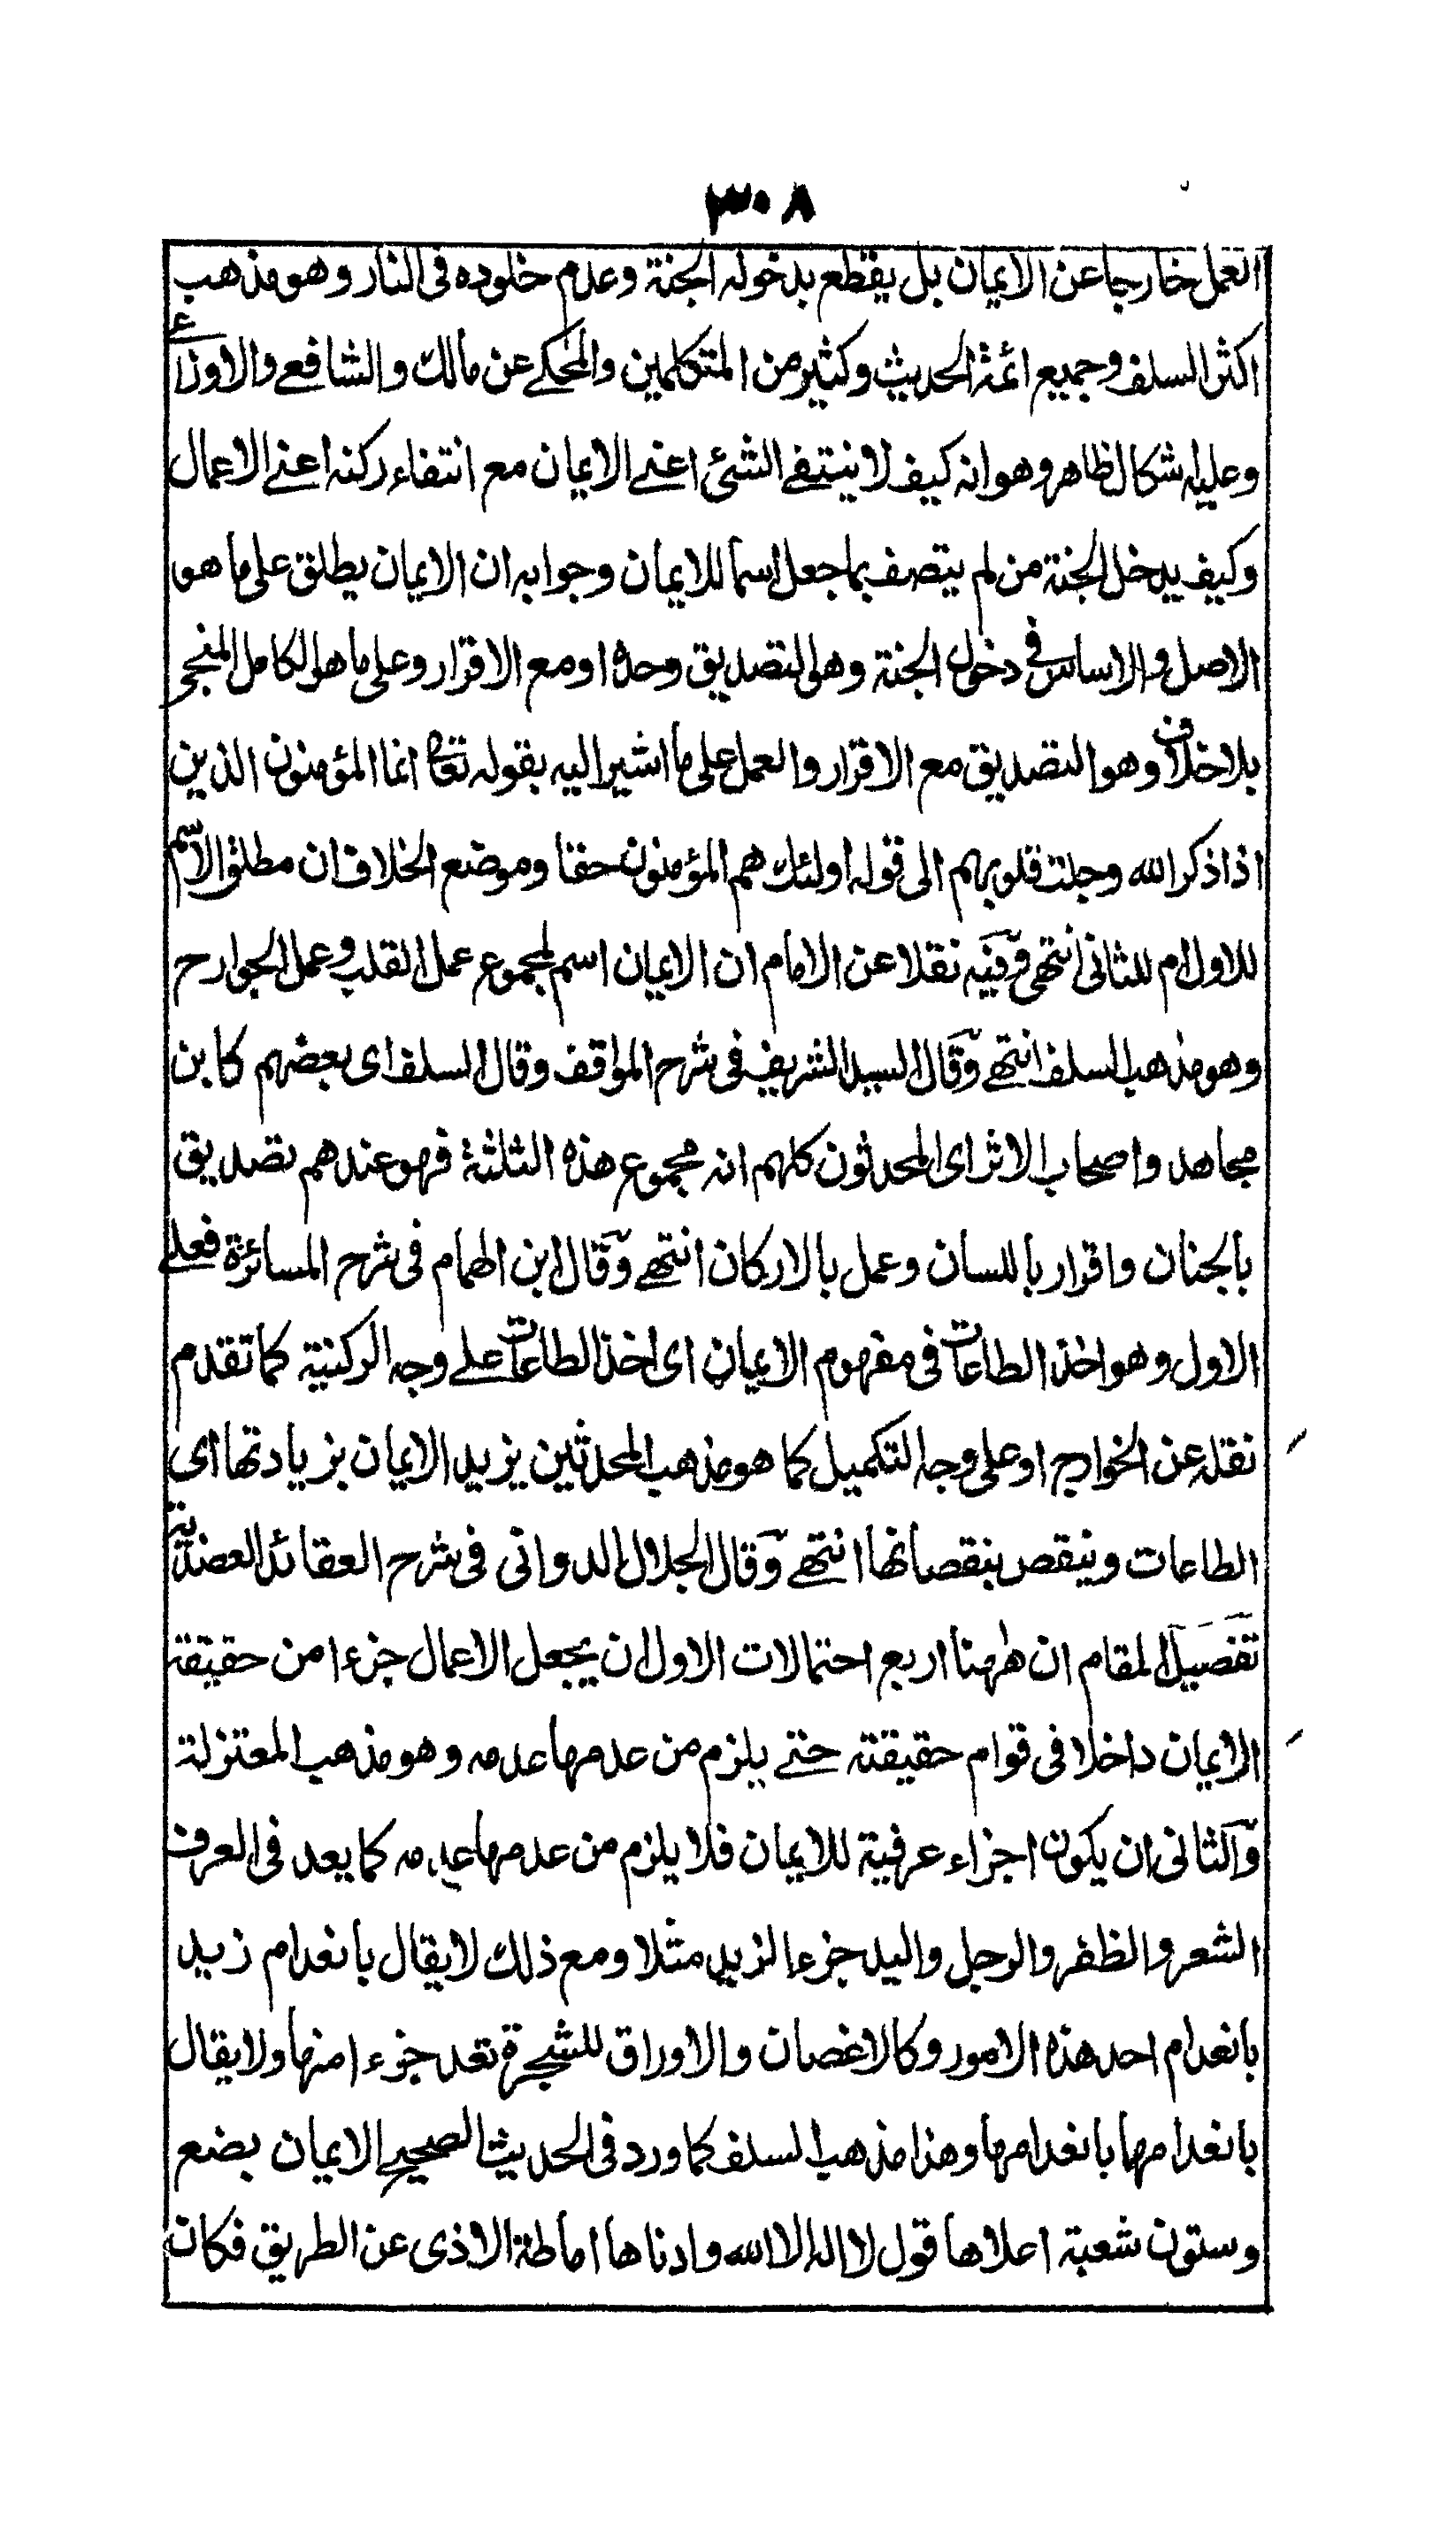 ٣٠٨
العمل خارجا عن الايمان بل يقطع بدخوله الجنة وعدم خلوده فى النار وهو مذهب
اكثر السلف وجميع ائمة الحديث وكثير من المتكلمين والمحكے عن مالك والشافعے والاوزاعے
وعليه شكال ظاهر وهو انه كيف لا ينتفے الشئ اعنے الايمان مع انتفاء ركنه اعنے الاعمال
وكيف يدخل الجنة من لم يتصف بما جعل اسما للايمان وجوابه ان الايمان يطلق على ما هو
الاصل والاساس فى دخول الجنة وهو التصديق وحده او مع الاقرار وعلى ما هو الكامل المنجى
بلاخلاف وهو التصديق مع الاقرار والعمل على ما اشير اليه بقوله تعا انما المؤمنون الذين
اذا ذكر الله وجلت قلوبهم الى قوله اولئك هم المؤمنون حقا وموضع الخلاف ان مطلق الاسم
للاول ام للثانى انتهى وفيه نقلا عن الامام ان الايمان اسم لمجموع عمل القلب وعمل الجوارح
وهو مذهب السلف انتهے وقال السيد الشريف فى شرح المواقف وقال السلف اى بعضهم كابن
مجاهد واصحاب الاثر اى المحدثون كلهم انه مجموع هذه الثلثة فهو عندهم تصديق
بالجنان واقرار باللسان وعمل بالاركان انتهے وقال ابن الهمام فى شرح المسائرة فعلے
الاول وهو اخذ الطاعات فى مفهوم الايمان اى اخذ الطاعات علے وجه الركنية كما تقدم
نقله عن الخوارج او على وجه التكميل كما هو مذهب المحدثين يزيد الايمان بزيادتها اى
الطاعات وينقص بنقصانها انتهے وقال الجلال الدوانى فى شرح العقائد العضدية
تفصيل المقام ان ههنا اربع احتمالات الاول ان يجعل الاعمال جزءا من حقيقة
الايمان داخلا فى قوام حقيقته حتے يلزم من عدمها عدمه وهو مذهب المعتزلة
والثانى ان يكون اجزاء عرفية للايمان فلا يلزم من عدمها عدمه كما يعد فى العرف
الشعر والظفر والرجل واليد جزءا لزيد مثلا ومع ذلك لا يقال بانعدام زيد
بانعدام احد هذه الامور وكالاغصان والاوراق للشجرة تعد جزءا منها ولا يقال
بانعدامها بانعدامها وهذا مذهب السلف كما ورد فى الحديث الصحيح الايمان بضع
وستون شعبة اعلاها قول لا اله الا الله وادناها اماطة الاذى عن الطريق فكان